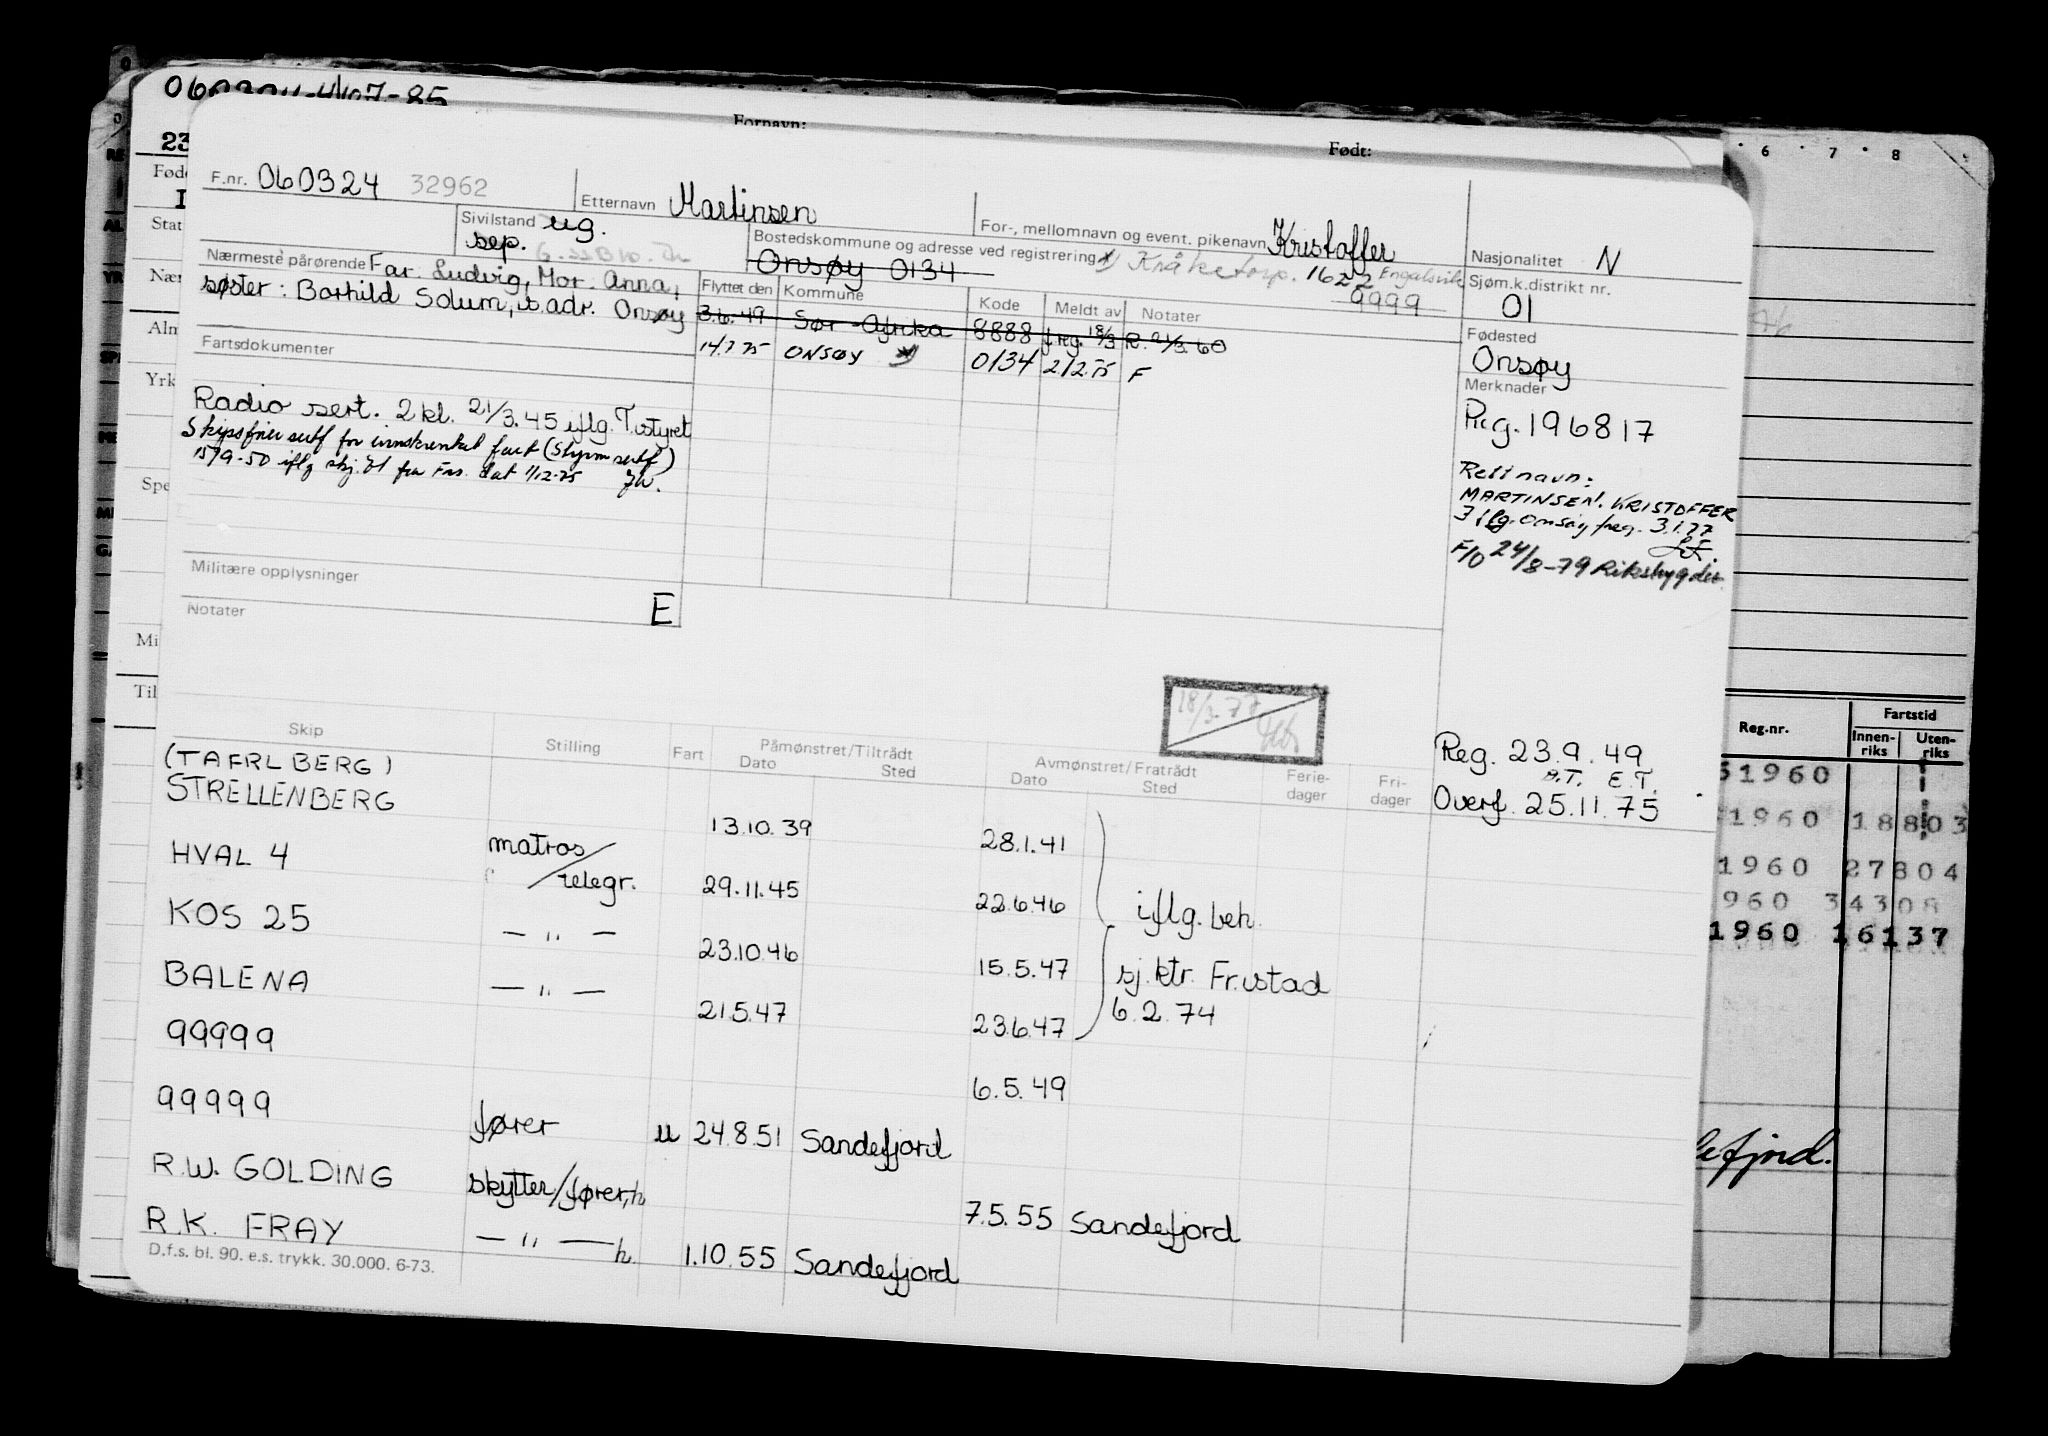 Fornavn:
Født:
F.nr. 060324 32962
Etternavn Martinsen
For-, mellomnavn og event. pikenavn Kristoffer
Nasjonalitet N
Sivilstand ug.
sep.
Bostedskommune og adresse ved registrering
Onsøy 0134
Kråketorp. 1622 Engalsvik
9999
Sjøm.k.distrikt nr.
01
Nærmeste pårørende Far: Ludvig, Mor: Anna,
søster: Borhild Solum, s. adr. Onsøy
Flyttet den Kommune Kode Meldt av Notater
3.6.49 Sør-Afrika 8888 f.reg. 18/3 R. 21/3.60
14.7.75 ONSØY 0134 21.2.75 F
Fødested
Onsøy
Merknader
Reg. 196817
Rett navn:
MARTINSEN, KRISTOFFER
Iflg. Onsøy freg. 3.1.77
F/O 24/8-79 Riksbygder
Fartsdokumenter
Radio sert. 2 kl. 21/3.45 iflg. T.styret
Skipsfører sertf for innskrenket fart (Styrm sertf)
15/9-50 iflg skj. 21 fra Frs. dat 1/12-75
Militære opplysninger
E
Notater
18/3.77
Reg. 23.9.49
B.T. E.T.
Overf. 25.11.75
Skip Stilling Fart Påmønstret/Tiltrådt Dato Sted Avmønstret/Fratrådt Dato Sted Ferie-dager Fri-dager
(TAFRLBERG)
STRELLENBERG 13.10.39 28.1.41
HVAL 4 matros/telegr. 29.11.45 22.6.46
KOS 25 — " — 23.10.46 15.5.47
BALENA — " — 21.5.47 23.6.47
iflg. beh.
sj.ktr. Fr.stad
6.2.74
99999 6.5.49
99999 fører u 24.8.51 Sandefjord
R.W. GOLDING skytter/fører, h 7.5.55 Sandefjord
R.K. FRAY — " — h. 1.10.55 Sandefjord
D.f.s. bl. 90. e.s. trykk. 30.000. 6-73.
6 7 8
Reg.nr. Fartstid
Innen-riks Uten-riks
51960
1960 18803
1960 27804
960 34308
1960 16137